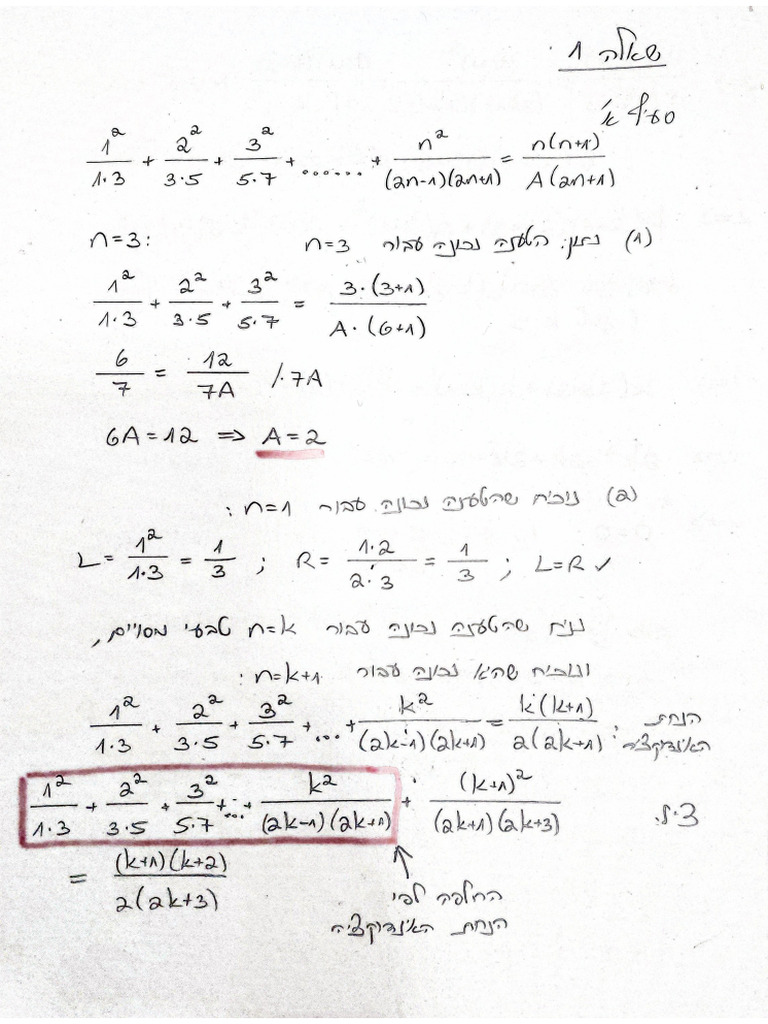 שאלה 1.
סעיף א׳
1²/(1·3) + 2²/(3·5) + 3²/(5·7) + ...... + n²/((2n-1)(2n+1)) = n(n+1)/(A(2n+1))
(1) נתון: הטענה נכונה עבור n=3
n=3:
1²/(1·3) + 2²/(3·5) + 3²/(5·7) = 3·(3+1)/(A·(6+1))
6/7 = 12/(7A) /·7A
6A=12 => A=2
(2) נוכיח שהטענה נכונה עבור n=1:
L = 1²/(1·3) = 1/3 ; R = 1·2/(2·3) = 1/3 ; L=R ✓
נניח שהטענה נכונה עבור n=k טבעי מסויים,
ונוכיח שהיא נכונה עבור n=k+1:
הנחת האינדוקציה: 1²/(1·3) + 2²/(3·5) + 3²/(5·7) + ... + k²/((2k-1)(2k+1)) = k(k+1)/(2(2k+1))
צ.ל. 1²/(1·3) + 2²/(3·5) + 3²/(5·7) + ... + k²/((2k-1)(2k+1)) + (k+1)²/((2k+1)(2k+3))
= (k+1)(k+2)/(2(2k+3))
החלפה לפי
הנחת האינדוקציה